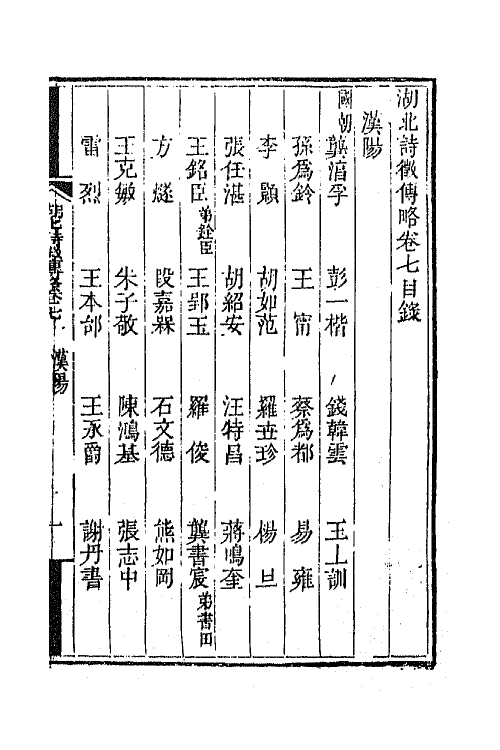 湖北詩徵傳略卷七目錄
漢陽
國朝 龔湻孚 彭一楷 錢韓雲 王上訓
孫爲鈴 王甯 蔡爲都 易雍
李顥 胡如范 羅世珍 楊旦
張任湛 胡紹安 汪特昌 蔣鳴奎
王銘臣 弟銓臣 王郢玉 羅俊 龔書宸 弟書田
方燧 段嘉 石文德 熊如岡
王克敏 朱子敬 陳鴻基 張志中
雷烈 王本 王永爵 謝丹書
湖北詩徵傳略卷七 漢陽 一